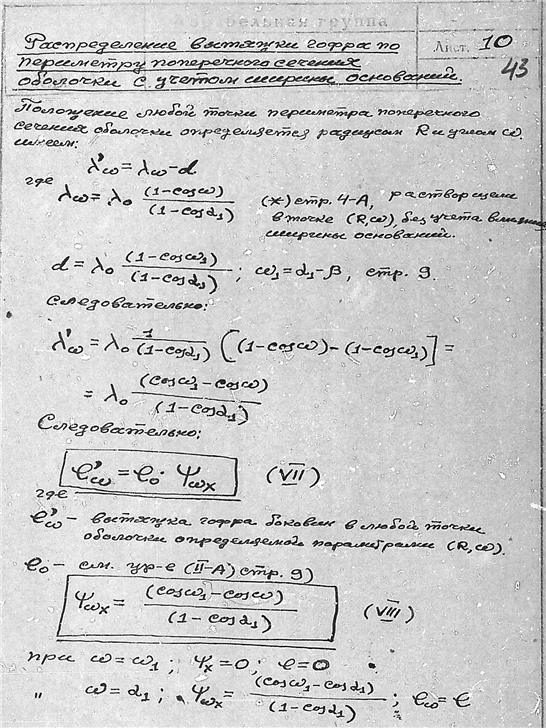 группа
Лист. 10
43
Распределение вытяжки гофра по
периметру поперечного сечения
оболочки с учетом ширины оснований.
Положение любой точки периметра поперечного
сечения оболочки определяется радиусом R и углом ω.
имеем:
λ'ω = λω - d
где
λω = λ₀ (1-cosω) / (1-cosα₁) (*) стр. 4-А, раствор щели
в точке (R,ω), без учета влияния
ширины оснований.
d = λ₀ (1-cosω₁) / (1-cosα₁) ; ω₁ = α₁-β, стр. 9.
Следовательно:
λ'ω = λ₀ 1 / (1-cosα₁) [(1-cosω)-(1-cosω₁)] =
= λ₀ (cosω₁-cosω) / (1-cosα₁)
Следовательно:
e'ω = e₀ · Ψωx (VII)
где
e'ω - вытяжка гофра боковин в любой точки
оболочки определяемой параметрами (R,ω).
e₀ - см. ур-е (II-А) стр. 9)
Ψωx = (cosω₁-cosω) / (1-cosα₁) (VIII)
при ω = ω₁ ; Ψx = 0 ; e = 0
" ω = α₁ ; Ψωx = (cosω₁-cosα₁) / (1-cosα₁) ; eω = e